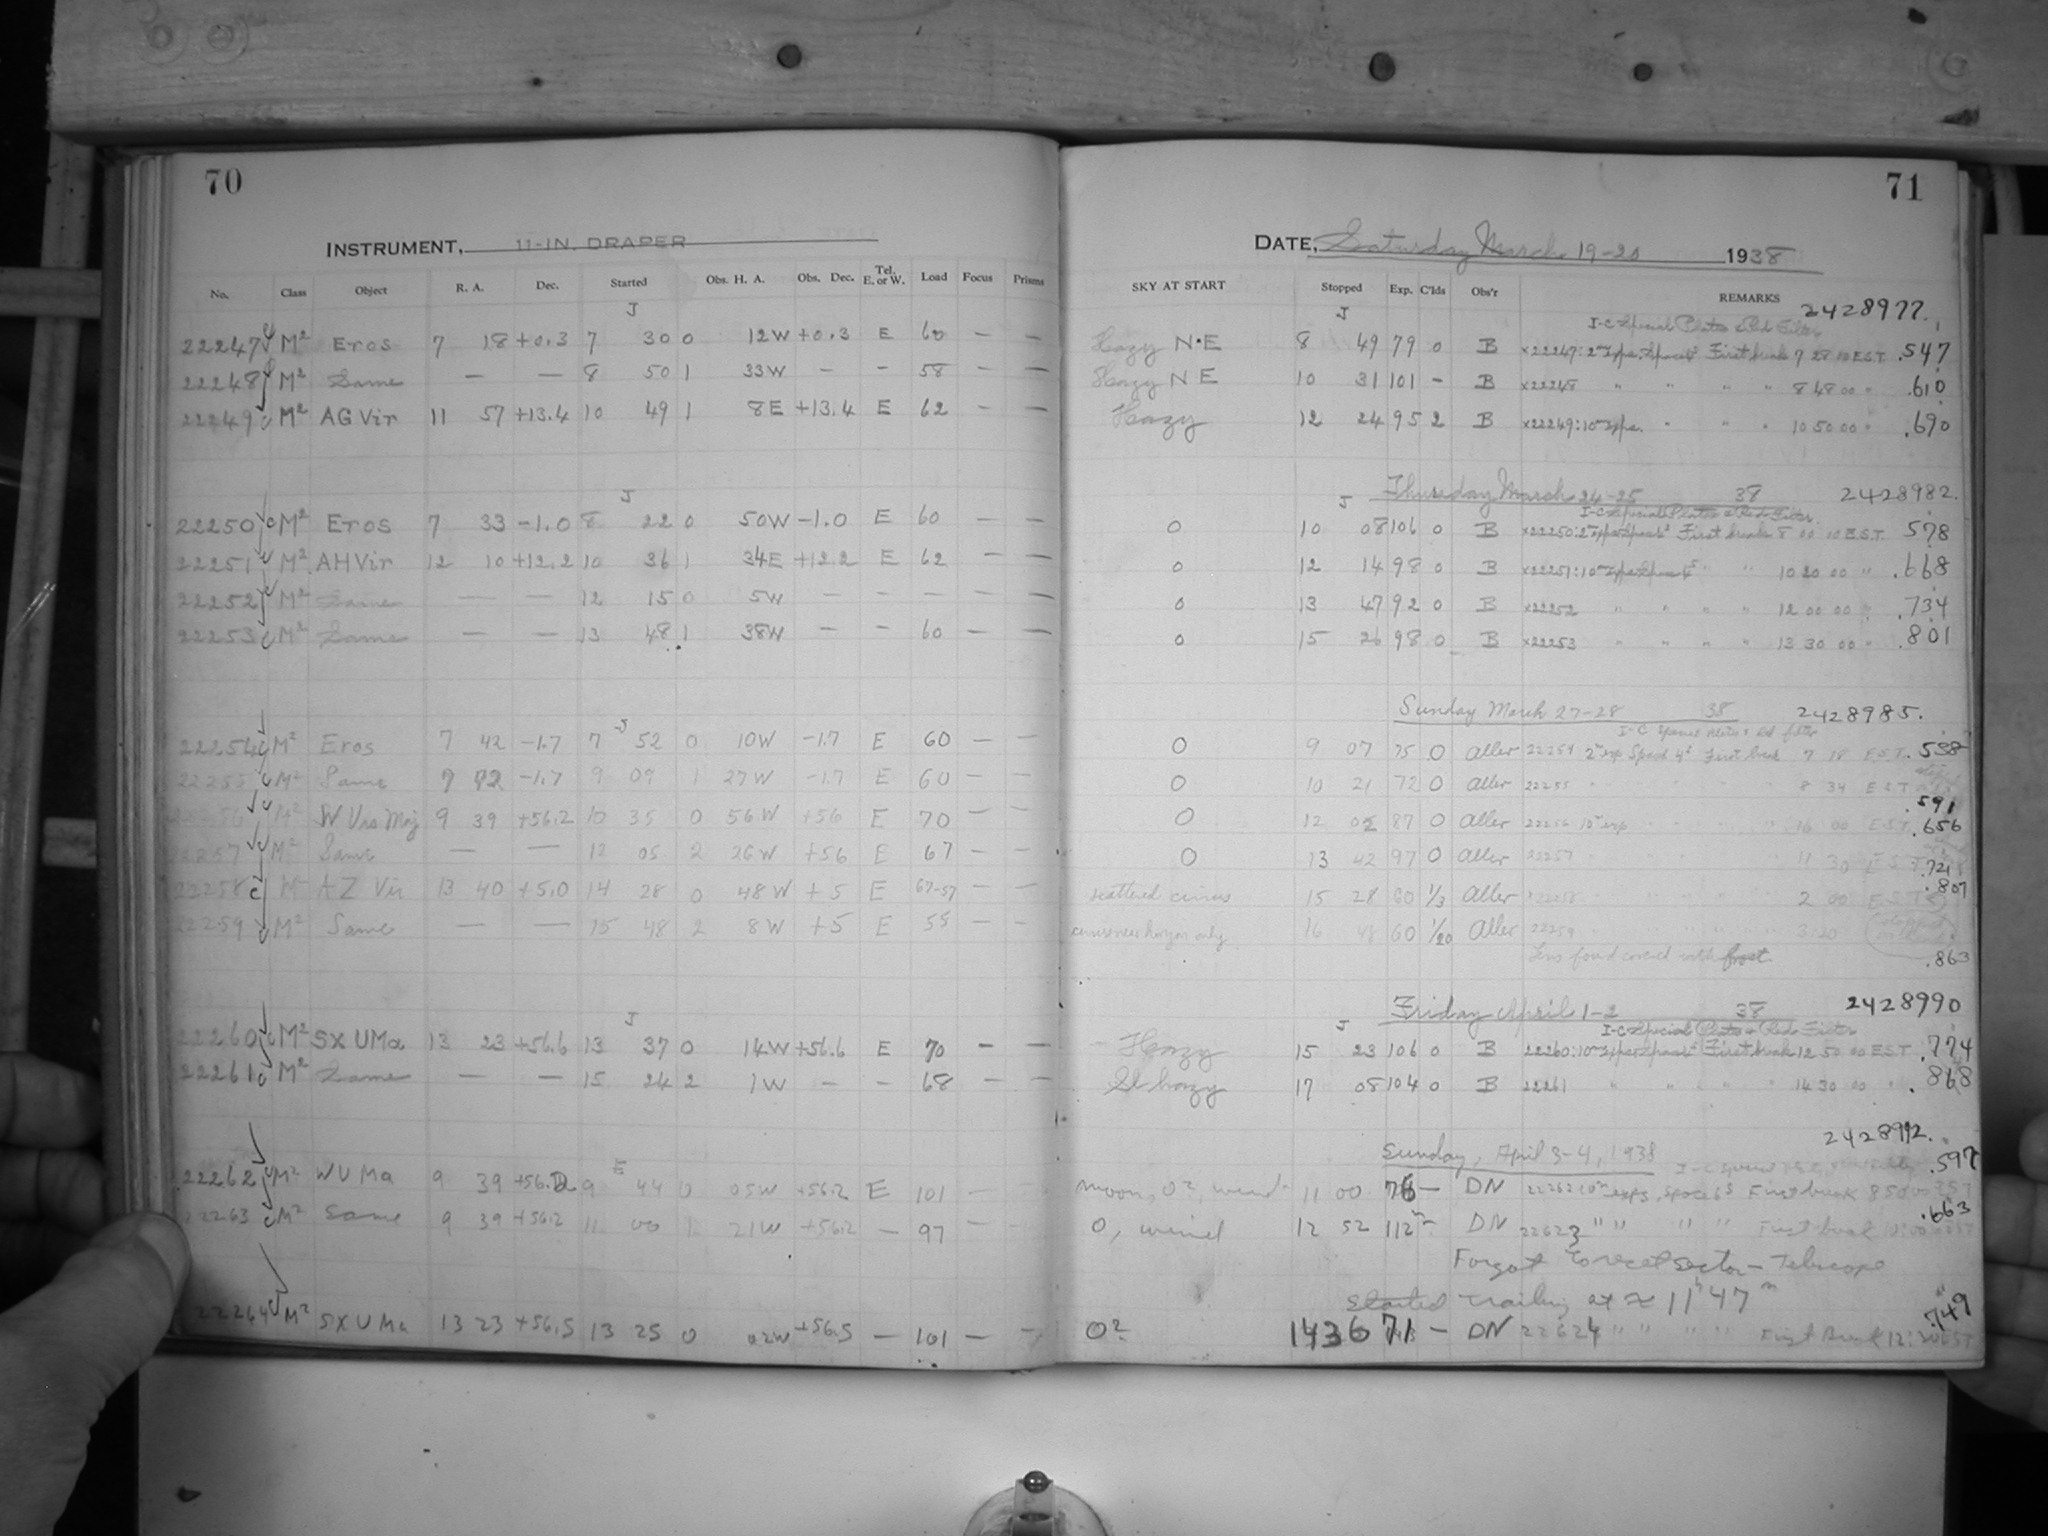 70
INSTRUMENT, 11-IN. DRAPER
No. Class Object R. A. Dec. Started Obs. H. A. Obs. Dec. Tel. E. or W. Load Focus Prisms
J
22247 M² Eros 7 18 +0.3 7 30 0 12W +0.3 E 60 — —
22248 M² Same — — 8 50 1 33W — — 58 — —
22249 M² AG Vir 11 57 +13.4 10 49 1 8E +13.4 E 62 — —
J
22250 M² Eros 7 33 -1.0 8 22 0 50W -1.0 E 60 — —
22251 M² AH Vir 12 10 +12.2 10 36 1 34E +12.2 E 62 — —
22252 M² Same — — 12 15 0 5W — — — — —
22253 M² Same — — 13 48 1 38W — — 60 — —
J
22254 M² Eros 7 42 -1.7 7 52 0 10W -1.7 E 60 — —
22255 M² Same 7 42 -1.7 9 09 1 27W -1.7 E 60 — —
22256 M² W Urs Maj 9 39 +56.2 10 35 0 56W +56 E 70 — —
22257 M² Same — — 12 05 2 26W +56 E 67 — —
22258 c M AZ Vir 13 40 +5.0 14 28 0 48W +5 E 67-57 — —
22259 M² Same — — 15 48 2 8W +5 E 55 — —
J
22260 M² SX UMa 13 23 +56.6 13 37 0 14W +56.6 E 70 — —
22261 M² Same — — 15 24 2 1W — — 68 — —
E
22262 M² W U Ma 9 39 +56.2 9 44 0 05W +56.2 E 101 — —
22263 M² Same 9 39 +56.2 11 00 1 21W +56.2 — 97
22264 M² SX U Ma 13 23 +56.5 13 25 0 02W +56.5 — 101 — —
71
DATE, Saturday March 19-20 1938
SKY AT START Stopped Exp. C'lds Obs'r REMARKS 2428977.
J I-C Special Plates & Red Filter
Hazy N·E 8 49 79 0 B x22247: 2m exps. Space 4s First break 7 28 10 E.S.T. .547
Hazy N E 10 31 101 - B x22248 " " " " 8 48 00 " .610
Hazy 12 24 95 2 B x22249: 10m exps. " " " 10 50 00 " .690
J Thursday March 24-25 38 2428982.
I-C Special Plates & Red Filter.
0 10 08 106 0 B x22250: 2m exps Space 4s First break 8 00 10 E.S.T. 578
0 12 14 98 0 B x22251: 10m exps Space 4s " " 10 20 00 " .668
0 13 47 92 0 B x22252 " " " " 12 00 00 " .734
0 15 26 98 0 B x22253 " " " " 13 30 00 " .801
Sunday March 27-28 38 2428985.
I-C Special Plates & Red filter
0 9 07 75 0 Aller 22254 2m exp Space 4s First break 7 18 EST. .538
0 10 21 72 0 Aller 22255 8 34 EST
.591
0 12 02 87 0 Aller 22256 10m exp 00 EST. .656
0 13 42 97 0 Aller 22257 11 30 EST .721
scattered cirrus 15 28 60 1/3 Aller 22258 2 00 EST .807
cirrus near horizon only 16 48 60 1/20 Aller 22259 3 20
Lens found covered with frost. .863
J Friday April 1-2 38 2428990
I-C Special Plates & Red Filter
Hazy 15 23 106 0 B 22260: 10m exps Space 4s First break 12 50 00 E.S.T. .774
Sl hazy 17 08 104 0 B 22261 " " " " 14 30 00 " .868
2428992.
Sunday, April 3-4, 1938 .597
moon, 0², wind 11 00 76 — DN 22262 10m exps, space 6s First break 8 50 00 EST
.663
0, wind 12 52 112m DN 22623 " " " " First break
Forgot to reset sector — Telescope
started trailing at ≈ 11h 47m
0² 14 36 71 — DN 22624 " " " " First Break 12:20 EST .749